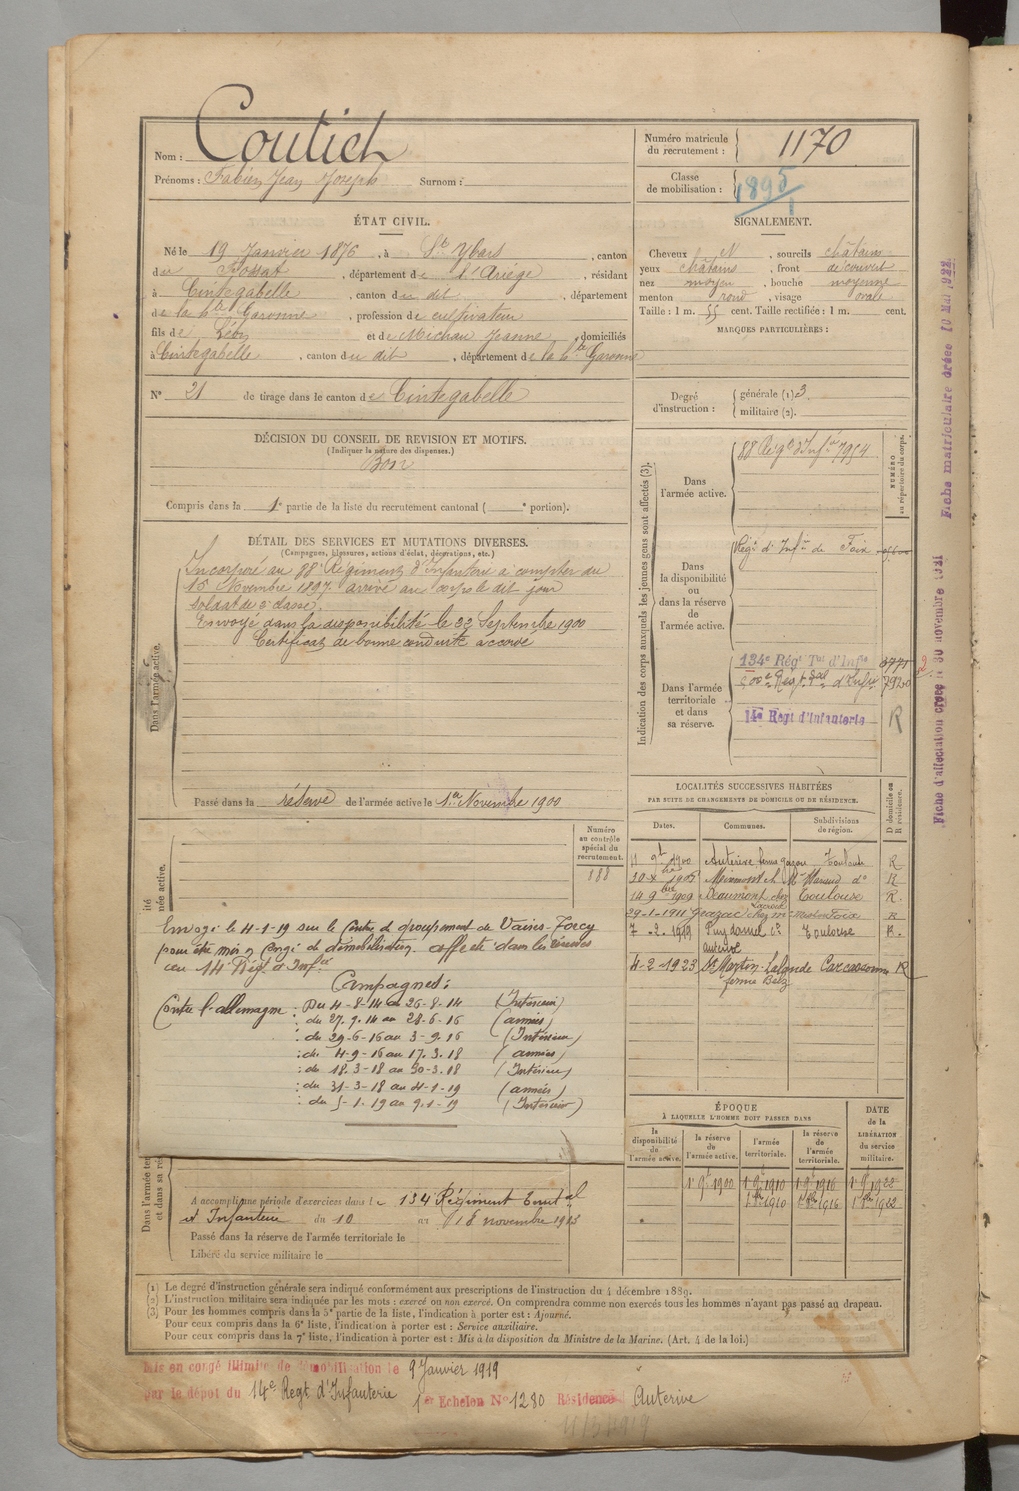 Nom : Coutich
Prénoms : Fabien Jean Joseph Surnom :
Numéro matricule du recrutement : 1170
Classe de mobilisation : 1895/1
ÉTAT CIVIL.
Né le 19 Janvier 1876, à St Ybars, canton
du Fossat, département de l'Ariège, résidant
à Cintegabelle, canton du dit, département
de la hte Garonne, profession de cultivateur
fils de Léon et de Michau Jeanne, domiciliés
à Cintegabelle, canton du dit, département de la hte Garonne
N° 21 de tirage dans le canton de Cintegabelle
SIGNALEMENT.
Cheveux N, sourcils châtains
yeux châtains, front découvert
nez moyen, bouche moyenne
menton rond, visage ovale
Taille : 1 m. 55 cent. Taille rectifiée : 1 m. cent.
MARQUES PARTICULIÈRES :
Degré d'instruction : générale (1) 3.
militaire (2).
DÉCISION DU CONSEIL DE REVISION ET MOTIFS.
(Indiquer la nature des dispenses.)
Bon
Compris dans la 1e partie de la liste du recrutement cantonal ( e portion).
DÉTAIL DES SERVICES ET MUTATIONS DIVERSES.
(Campagnes, blessures, actions d'éclat, décorations, etc.)
Dans l'armée active.
Incorporé au 88e Régiment d'Infanterie à compter du
15 Novembre 1897 arrivé au corps le dit jour
soldat de 2e classe.
Envoyé dans la disponibilité le 22 Septembre 1900
Certificat de bonne conduite accordé
Passé dans la réserve de l'armée active le 1er Novembre 1900
Numéro au contrôle spécial du recrutement.
188
Envoyé le 4-1-19 sur le Centre de groupement de Vaires-Torcy
pour être mis en Congé de démobilisation. affecté dans les réserves
au 14e Régt d'Infie
Campagnes :
Contre l'allemagne : Du 4-8-14 au 26-8-14 (Intérieur)
: du 27.9.14 au 28-6-16 (armées)
: du 29-6-16 au 3-9.16 (Intérieur)
: du 4-9-16 au 17.3.18 (armées)
: du 18.3-18 au 30-3.18 (Intérieur)
: du 31-3-18 au 4-1-19 (armées)
: du 5-1.19 au 9.1-19 (Intérieur)
A accompli une période d'exercices dans le 134 Régiment Territal
d'Infanterie du 10 au 18 novembre 1913
Passé dans la réserve de l'armée territoriale le
Libéré du service militaire le
Indication des corps auxquels les jeunes gens sont affectés (3).
NUMÉRO au répertoire du corps.
Dans l'armée active.
88 Régt d'Infie 7954
Dans la disponibilité ou dans la réserve de l'armée active.
Régt d'Infie de Foix
Dans l'armée territoriale et dans sa réserve.
134e Régt Tal d'Infie 3771
Régt d'Infie 7920
14e Régt d'Infanterie R
LOCALITÉS SUCCESSIVES HABITÉES
PAR SUITE DE CHANGEMENTS DE DOMICILE OU DE RÉSIDENCE.
Dates. Communes. Subdivisions de région. D domicile ou R résidence.
11 9bre 1900 Auterive Toulouse R
Miremont do R
14 9bre 1909 Beaumont chez Lacroix Toulouse R.
29-1-1911 Gazac chez Foix R
7-2-1919 Puydaniel cn Auterive Toulouse R.
4-2-1923 St Martin-Lalande ferme Belz Carcassonne R
ÉPOQUE
À LAQUELLE L'HOMME DOIT PASSER DANS
la disponibilité de l'armée active.
la réserve de l'armée active.
l'armée territoriale.
la réserve de l'armée territoriale.
DATE de la LIBÉRATION du service militaire.
1er 9bre 1900 1er 9bre 1910 1er 9bre 1916 1er 9bre 1922
1er 8bre 1910 1er 8bre 1916 1er 8bre 1922
(1) Le degré d'instruction générale sera indiqué conformément aux prescriptions de l'instruction du 4 décembre 1889.
(2) L'instruction militaire sera indiquée par les mots : exercé ou non exercé. On comprendra comme non exercés tous les hommes n'ayant pas passé au drapeau.
(3) Pour les hommes compris dans la 5e partie de la liste, l'indication à porter est : Ajourné.
Pour ceux compris dans la 6e liste, l'indication à porter est : Service auxiliaire.
Pour ceux compris dans la 7e liste, l'indication à porter est : Mis à la disposition du Ministre de la Marine. (Art. 4 de la loi.)
Mis en congé illimité de démobilisation le 9 Janvier 1919
par le dépôt du 14e Régt d'Infanterie 1er Echelon N° 1280 Résidence Auterive
11/3/1919
Fiche d'affectation créée le 30 novembre 1921
Fiche matriculaire créée 10 Mai 1922